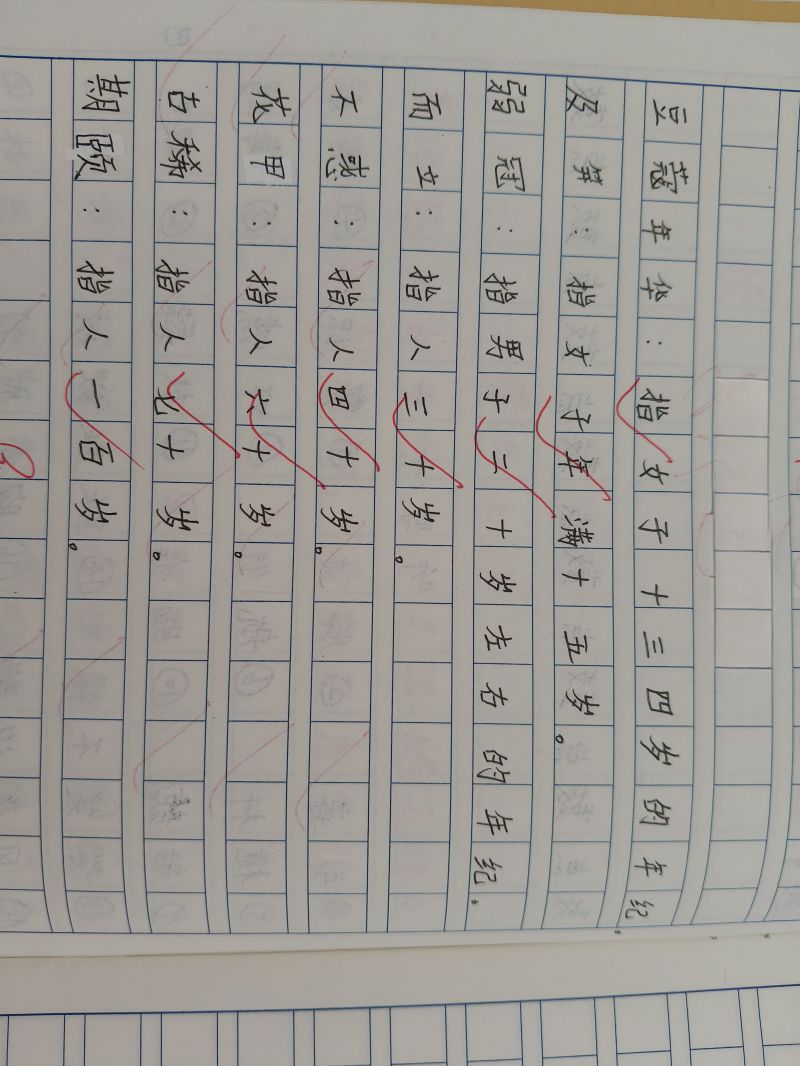 豆蔻年华：指女子十三四岁的年纪。
及笄：指女子年满十五岁。
弱冠：指男子二十岁左右的年纪。
而立：指人三十岁。
不惑：指人四十岁。
花甲：指人六十岁。
古稀：指人七十岁。
期颐：指人一百岁。